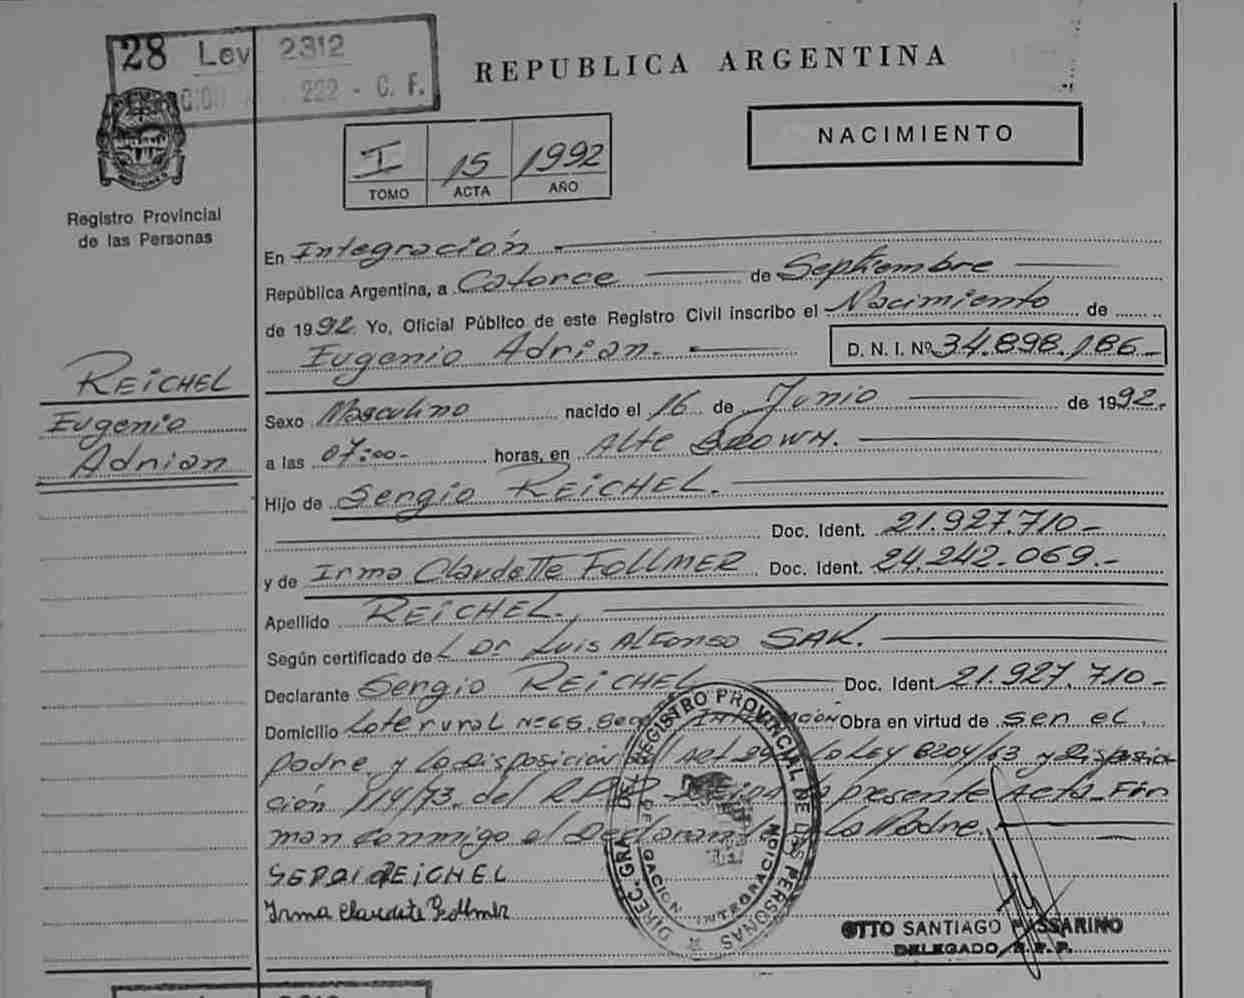 28 Ley 2312
222 - C. F.
REPUBLICA ARGENTINA
NACIMIENTO
I 15 1992
TOMO ACTA AÑO
MISIONES
Registro Provincial
de las Personas
En Integración
República Argentina, a Catorce de Septiembre
de 1992 Yo, Oficial Público de este Registro Civil inscribo el Nacimiento de
Eugenio Adrian.- D. N. I. Nº 34.898.186-
REICHEL
Eugenio
Adrian
Sexo Masculino nacido el 16 de Junio de 1992.
a las 07:00- horas, en Alte BROWN.
Hijo de Sergio REICHEL.
Doc. Ident. 21.927.710-
y de Irma Claudette FOLLMER Doc. Ident. 24.242.069.-
Apellido REICHEL.
Según certificado del Dr Luis Alfonso SAK.
Declarante Sergio REICHEL Doc. Ident 21.927.710-
Domicilio Lote rural Nº 65 Obra en virtud de sen el
padre y la disposición Ley 8204/63 y disposi
ción 114/73 del presente Acta Fir
man conmigo el Declarante la Madre.
SERGI REICHEL
Irma Claudete Follmer
DIREC. GRAL. DEL REGISTRO PROVINCIAL DE LAS PERSONAS
DELEGACION INTEGRACION
OTTO SANTIAGO PASSARINO
DELEGADO R. P. P.